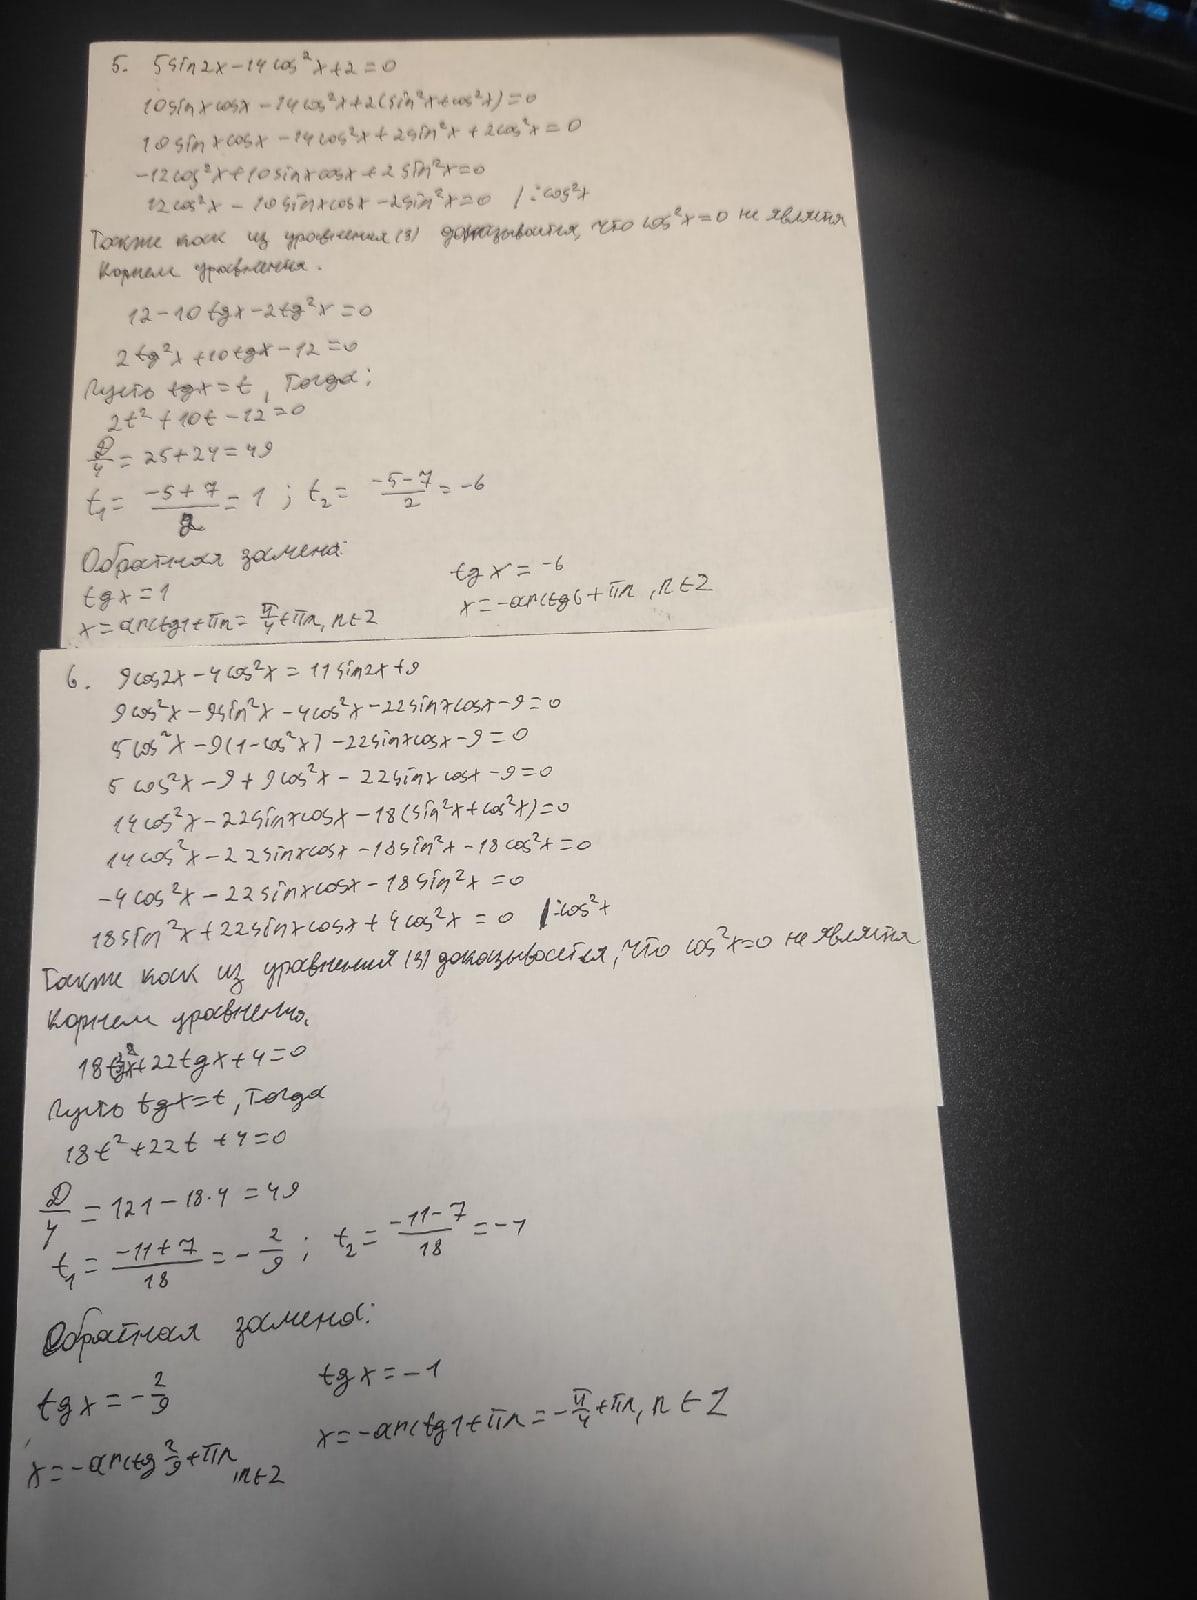 5. 5sin2x-14cos²x+2=0
10sinxcosx-14cos²x+2(sin²x+cos²x)=0
10sinxcosx-14cos²x+2sin²x+2cos²x=0
-12cos²x+10sinxcosx+2sin²x=0
12cos²x-10sinxcosx-2sin²x=0 /:cos²x
Также как из уравнения (3) доказывается, что cos²x=0 не является
корнем уравнения.
12-10tgx-2tg²x=0
2tg²x+10tgx-12=0
Пусть tgx=t, Тогда:
2t²+10t-12=0
D/4=25+24=49
t₁=(-5+7)/2=1; t₂=(-5-7)/2=-6
Обратная замена:
tgx=1 tgx=-6
x=arctg1+πn=π/4+πn, n∈Z x=-arctg6+πn, n∈Z
6. 9cos2x-4cos²x=11sin2x+9
9cos²x-9sin²x-4cos²x-22sinxcosx-9=0
5cos²x-9(1-cos²x)-22sinxcosx-9=0
5cos²x-9+9cos²x-22sinxcosx-9=0
14cos²x-22sinxcosx-18(sin²x+cos²x)=0
14cos²x-22sinxcosx-18sin²x-18cos²x=0
-4cos²x-22sinxcosx-18sin²x=0
18sin²x+22sinxcosx+4cos²x=0 /:cos²x
Также как из уравнения (3) доказывается, что cos²x=0 не является
корнем уравнения.
18tg²x+22tgx+4=0
Пусть tgx=t, Тогда
18t²+22t+4=0
D/4=121-18·4=49
t₁=(-11+7)/18=-2/9; t₂=(-11-7)/18=-1
Обратная замена:
tgx=-2/9 tgx=-1
x=-arctg2/9+πn, n∈Z x=-arctg1+πn=-π/4+πn, n∈Z